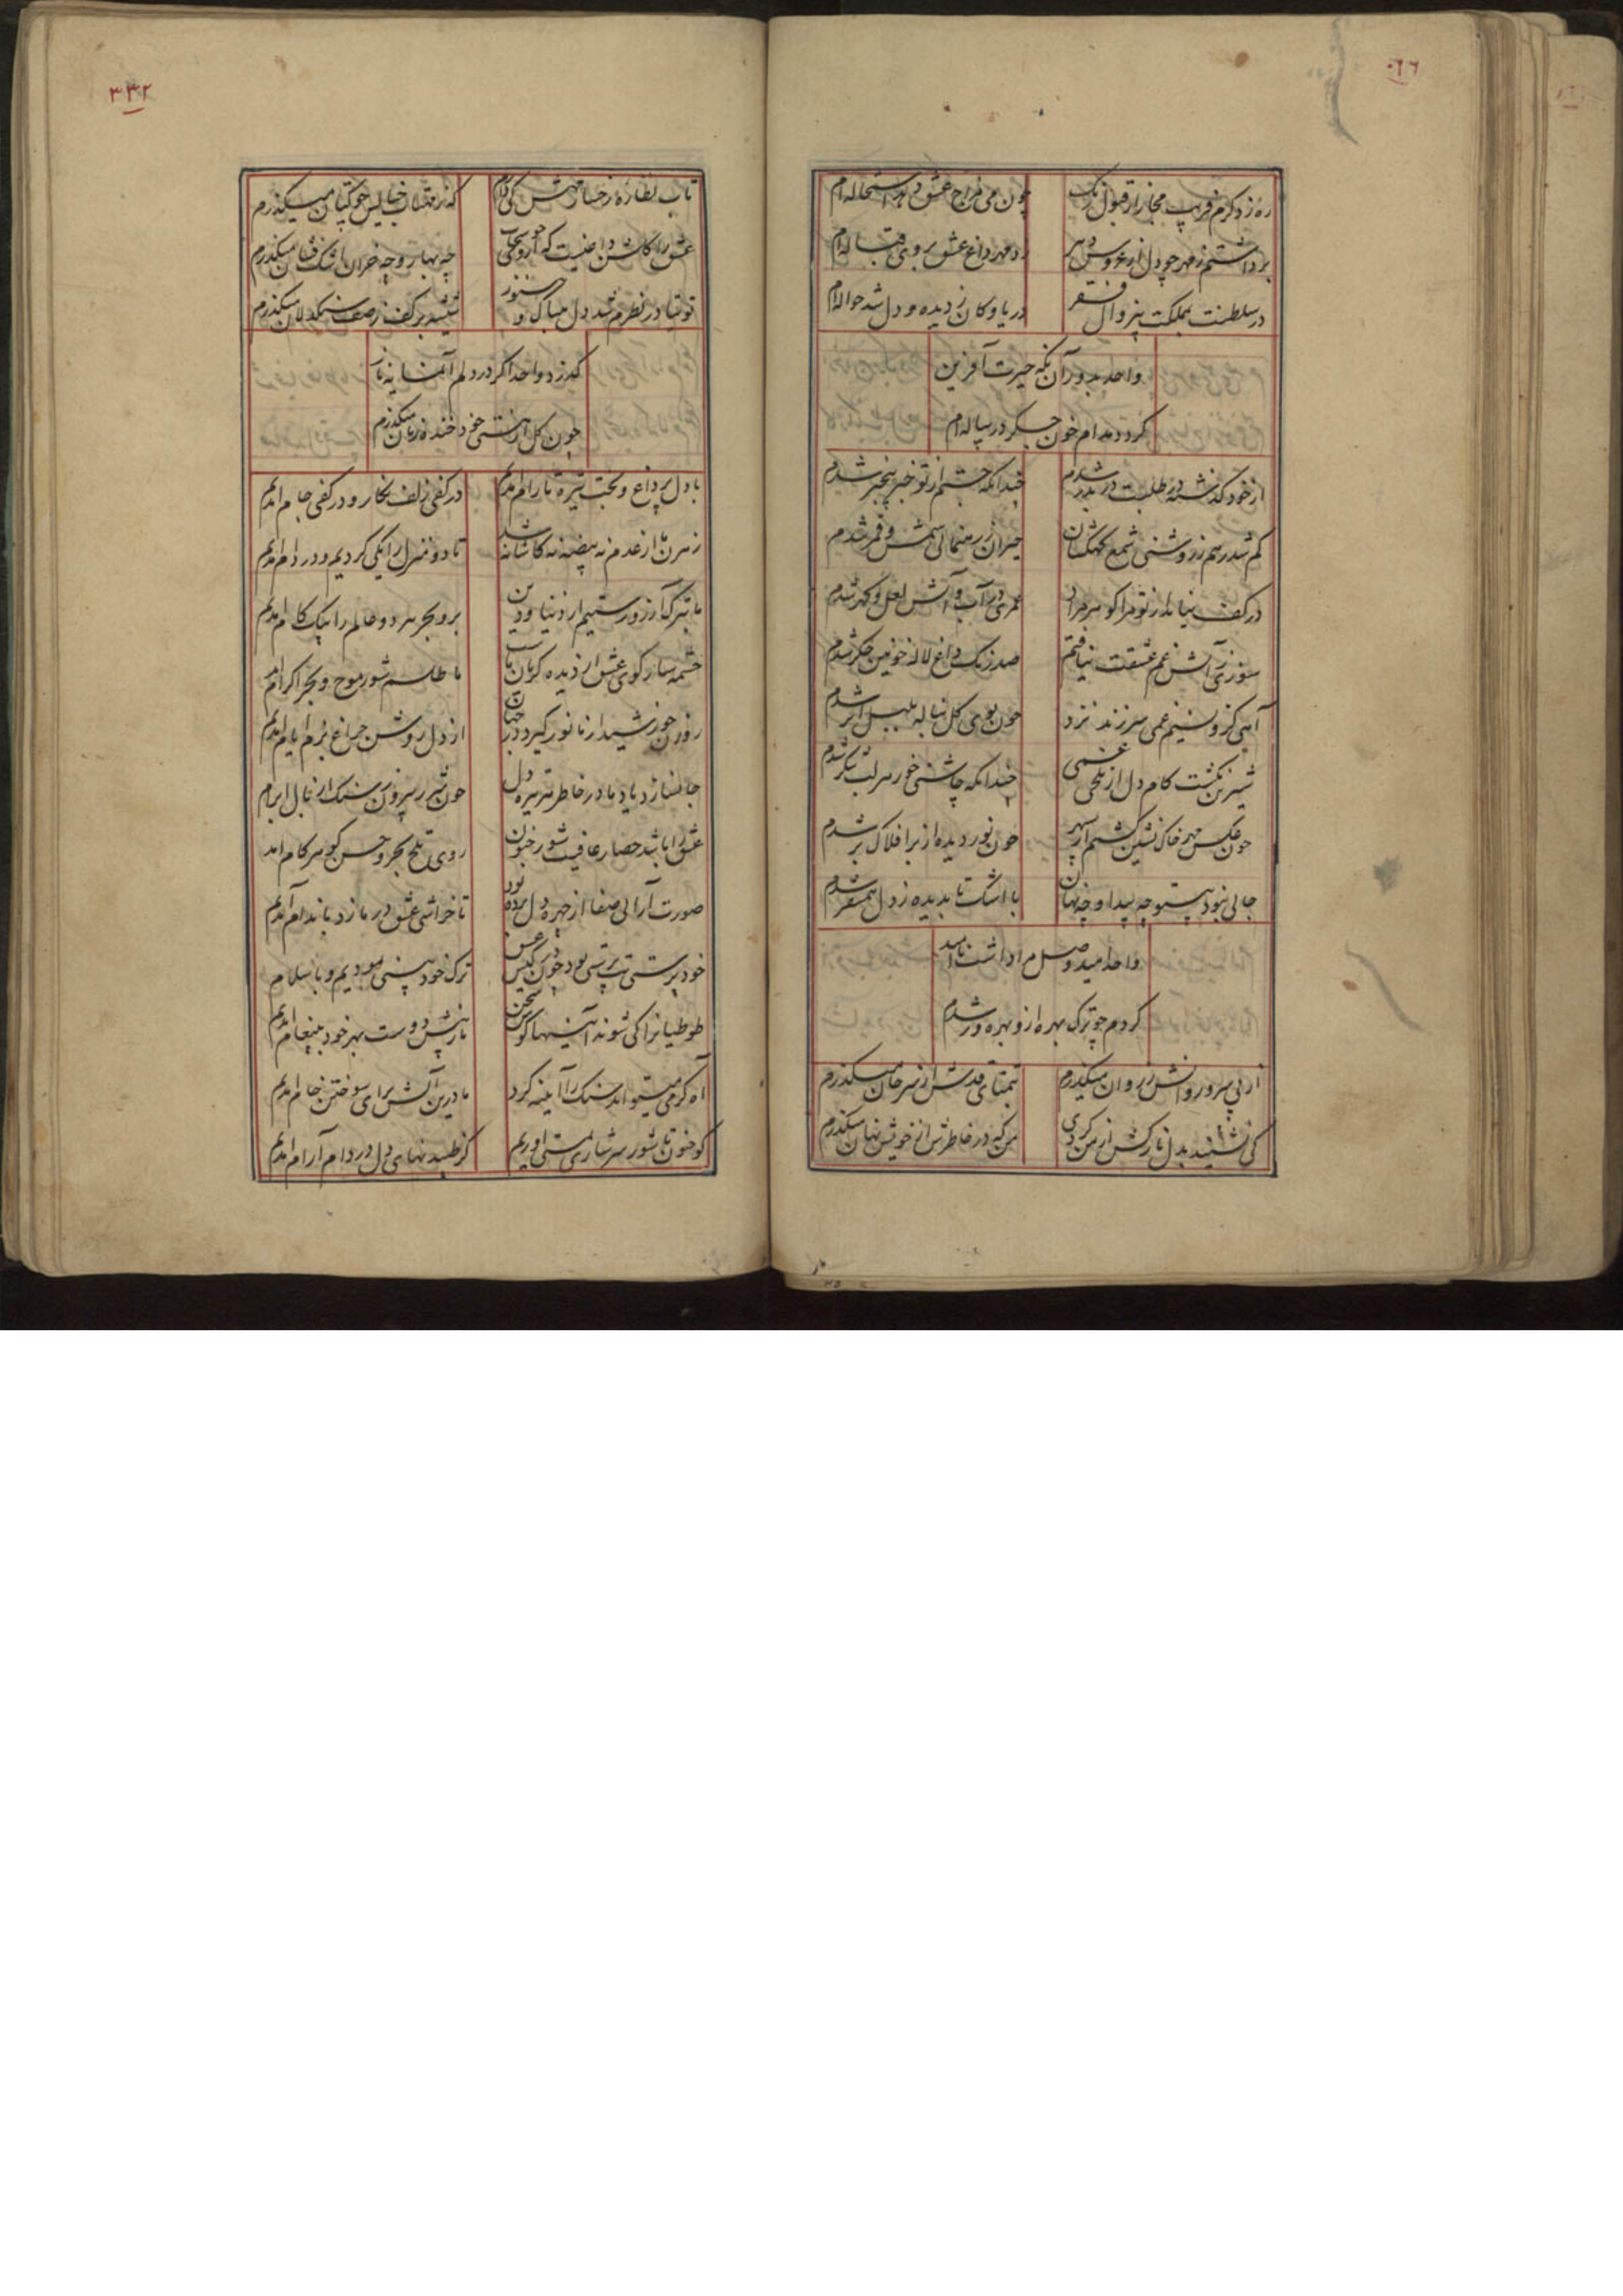 ۰۶۶
ره زد کرم فریب مجاز از قبول رنگ چون می مزاج عشق دهد استحاله ام
برداشتم ز مهر چو دل از عروس دهر در مهر داغ عشق بروی قباله ام
در سلطنت بملکت بی زوال فقر دریا و کان ز دیده و دل شد حواله ام
واحد بدور آن نگه حیرت آفرین
گردد مدام خون جگر در پیاله ام
از خود گذشته در طلبت دربدر شدم چندانکه جستم از تو خبر بیخبر شدم
گم شد رهم ز روشنی شمع کهکشان حیران ز رهنمائی شمس و قمر شدم
در کف نیامد از تو مرا گوهر مراد عمری در آب و آتش لعل و گهر شدم
سوزی ز آتش غم عشقت نیافتم صد رنگ داغ لاله خونین جگر شدم
آهی کزو نسیم غمی سر زند نزد چون بوی گل بناله بلبل اثر شدم
شیرین نگشت کام دل از تلخی غمی چندانکه چاشنی خور هر لب شکر شدم
چون عکس مهر خاک نشین گشتم از سپهر چون نور دیده از بر افلاک بر شدم
جائی نبود بیتو چه پیدا و چه نهان با اشک تا بدیده ز دل همسفر شدم
واحد امید وصلم ازو داشت ناامید
کردم چو ترک بهره ازو بهره ور شدم
از پی سرو روانش ز روان میگذرم بتمنای قدش از سر جان میگذرم
کی نشیند بدل نازکش از من گردی من که در خاطرش از خویش نهان میگذرم
۳۳۲
تاب نظاره رخسار مهش کی دارم که ز مهتاب خیالش چو کتان میگذرم
عشق را گلشن داغیست که از وی چو سحاب چه بهار و چه خزان اشک فشان میگذرم
توتیا در نظرم شد دل بیباک و هنوز شیشه بر کف ز صف سنگدلان میگذرم
گذرد واحد اگر در دلم آنسان
چون گل از هستی خود خنده زنان میگذرم
با دل پر داغ و بخت تیره تا رام آمدیم در کفی زلف نگار و در کفی جام آمدیم
تا دو منزل را یکی کردیم و در دام آمدیم
ما بترک آرزو رستیم از دنیا و دین بر و بحر هر دو عالم را بیک گام آمدیم
چشمه سار کوی عشق از دیده گریان ماست ما طلسم شور موج و بحر اکرام آمدیم
روزن خورشید از ما نور گیرد در جهان از دل روشن چراغ بزم ایام آمدیم
جانسازد یاد ما در خاطر هر تیره دل چون شرر بیرون ز سنگ از بال ابرام آمدیم
عشق را باشد حصار عافیت شور جنون روی تلخ بحر و حسن گوهر کام آمدیم
صورت آرائی صفا از چهره دل برده بود تا خراش عشق در ما زد باندام آمدیم
خودپرستی بت پرستی بود چون در کیش عشق ترک خودبینی نمودیم و باسلام آمدیم
طوطیانرا کی شوند آئینها گوش سخن ما ز پیش دوست بهر خود به پیغام آمدیم
آه گرمی میتواند سنگ را آئینه کرد ما درین آتش برای سوختن خام آمدیم
کو جنون تا شور سرشاری بمستی آوریم کز طپیدنهای دل در دام آرام آمدیم